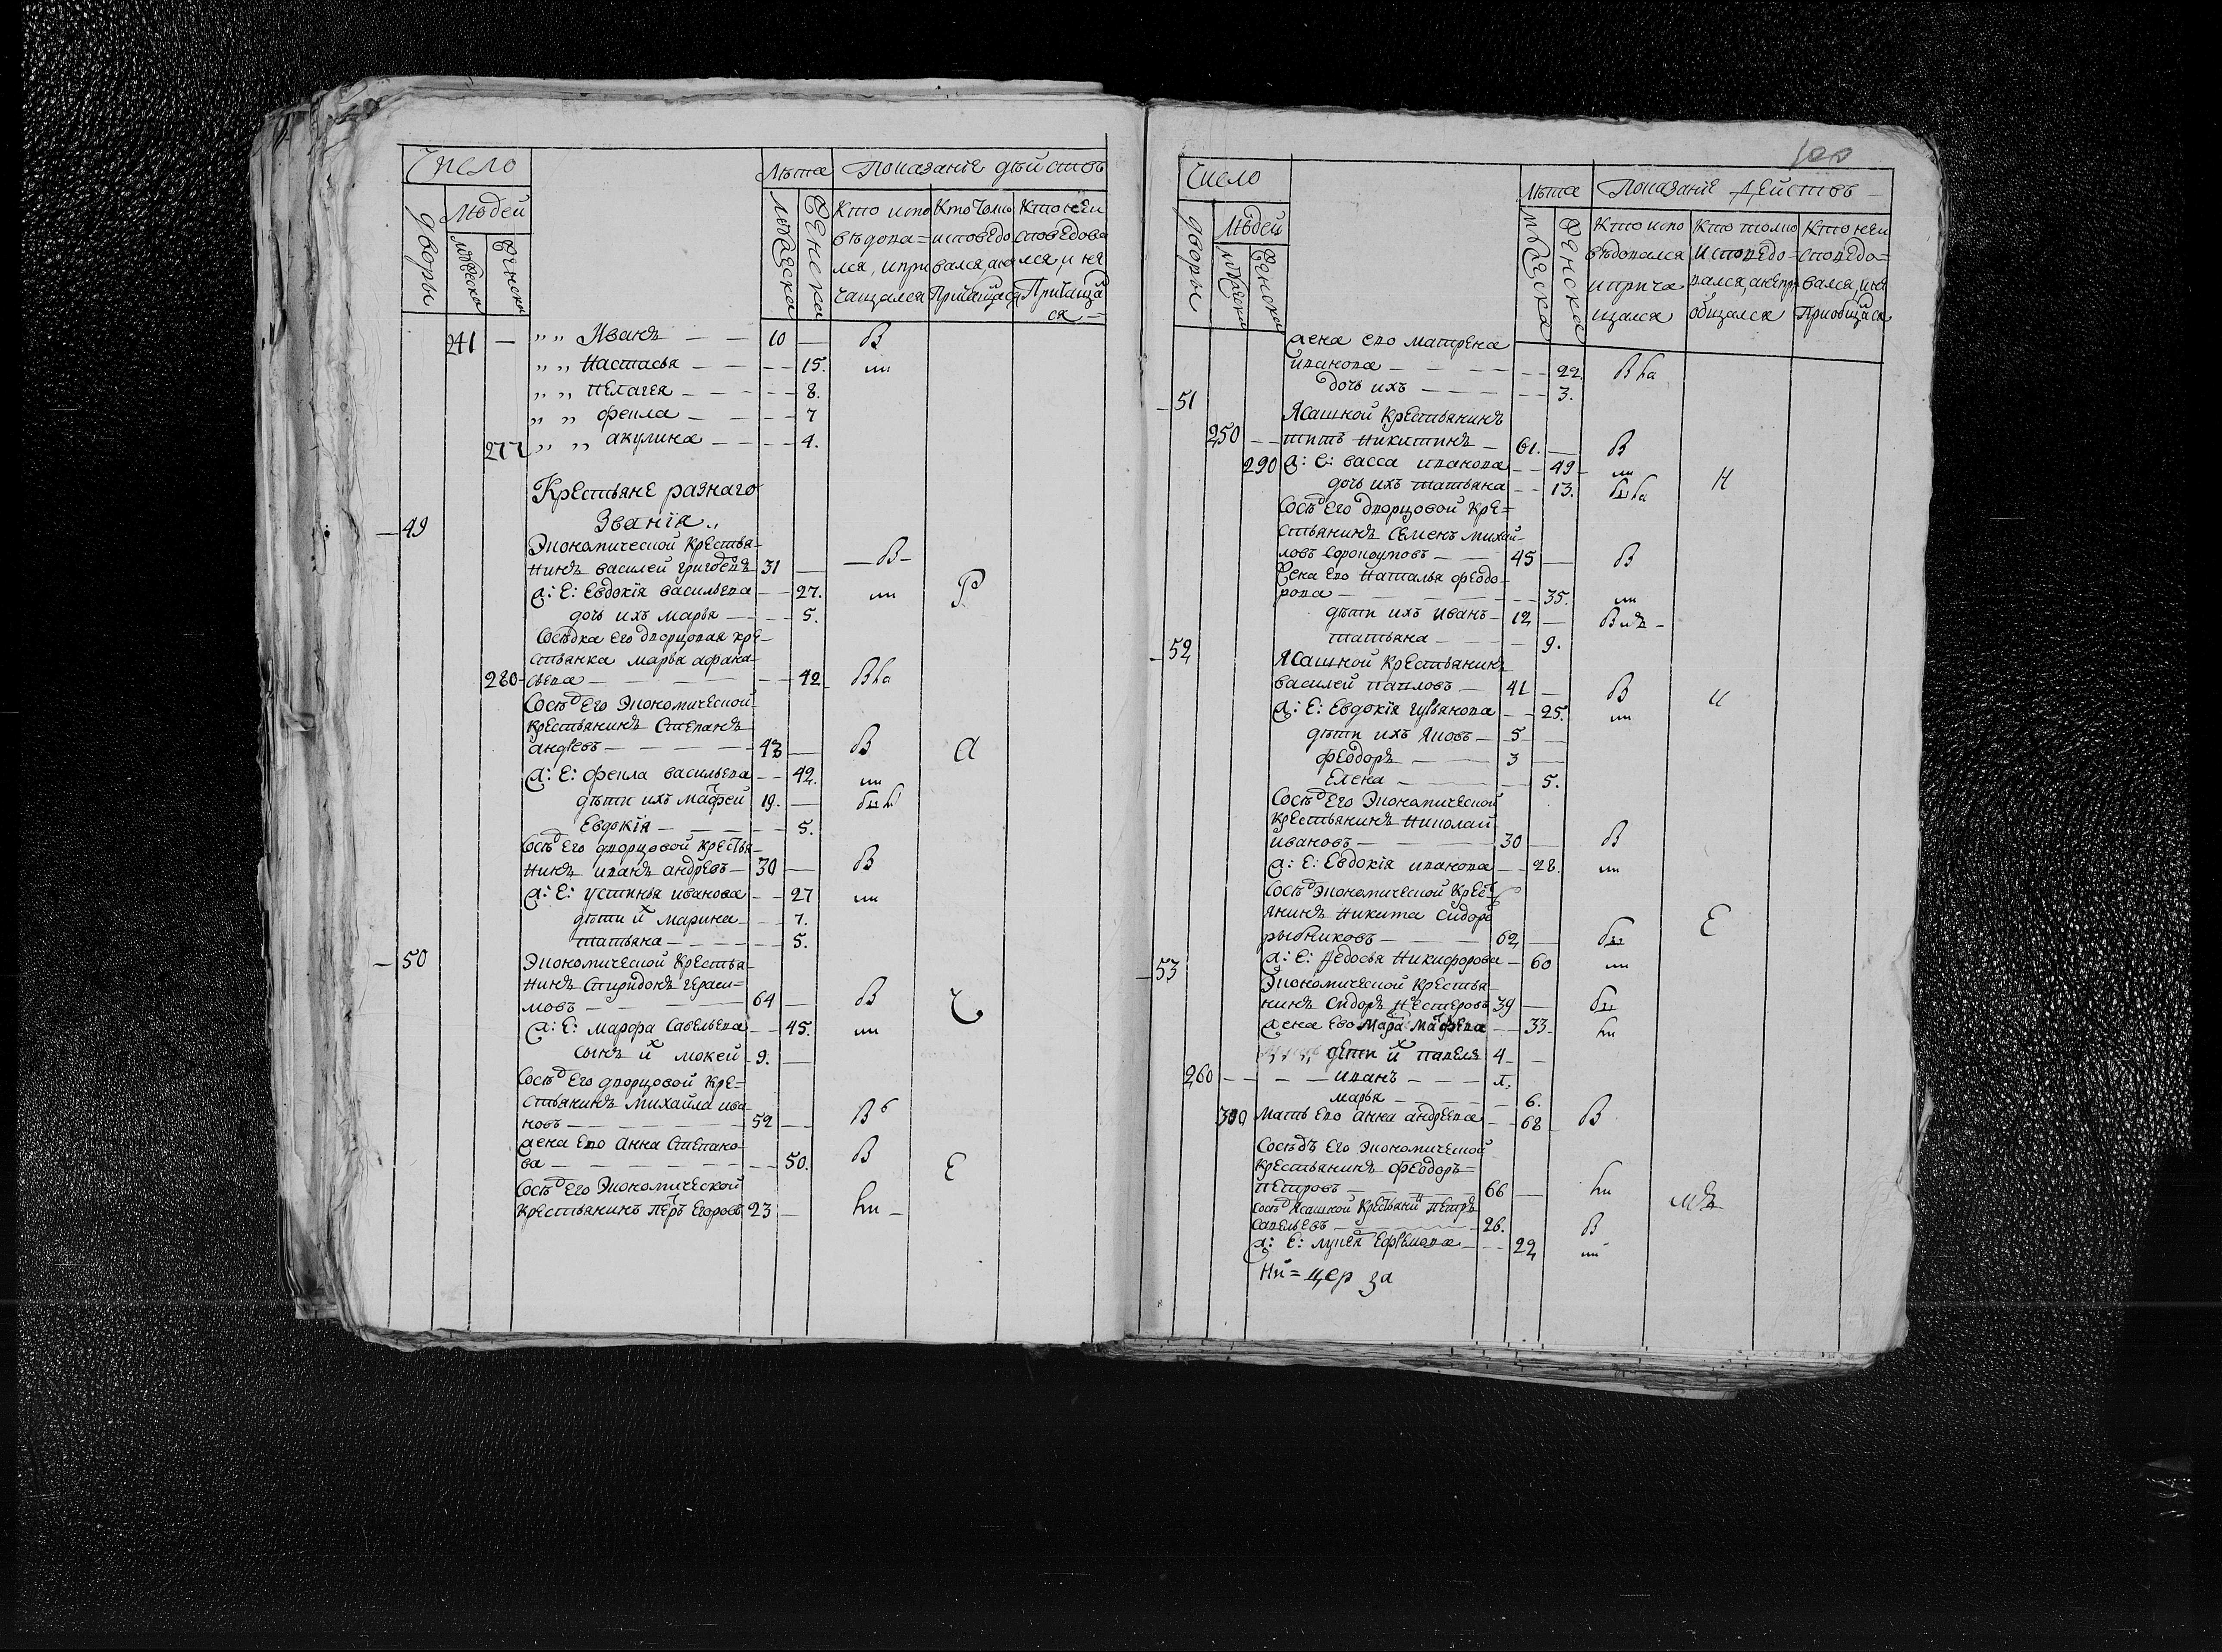 Число
Лѣта Показанїе дѣйствъ
дворы
Людей
мужеска
женска
мужеска
женска
Кто испо
вѣдова=
лся, и при
чащался
Кто толко
исповедо
вался, а не
Причащася
Кто не и
споведова
лся, и не
Причаща
ся =
241 — „ „ Иванъ — — 10 — В
„ „ Настасья — — — — 15.
„ „ Пелагея — — — — 8.
„ „ Фекла — — — 7
277 „ „ акулина — — — 4.
Крестьяне разнаго
Званїя „
49
Экономической крестья-
нинъ василей григорьевъ 31 — — В —
ж: Е: Евдокїя васильева — — 27. Р
дочь ихъ марья — — — 5.
Сосѣдка его дворцовая кре-
стьянка марья афана-
280 - сьева — — — — — 42
Сосѣд Его Экономической
крестьянинъ Степанъ
андрѣевъ — — — — 43 — В а
ж: Е: фекла васильева — — 42.
дѣти ихъ матфей 19. —
Евдокїя — — — — 5.
Сосѣд Его дворцовой крестья-
нинъ иванъ андреевъ — 30 — В
ж: Е: устинья иванова — — 27
дѣти их марина — — 7.
татьяна — — — — 5.
50 Экономической крестья-
нинъ Спиридонъ гераси=
мовъ — — — 64 — В
ж: Е: марфа савельева — — 45.
сынъ их мокей - 9. —
Сосѣд Его дворцовой кре=
стьянинъ михайла ива-
новъ — — — — — 52 — В
жена Ево Анна Степано-
ва — — — — — — 50. В Е
Сосѣд Его Экономической
крестьянинъ Петръ Егоровъ 23 —
Число
Лѣта Показанїе дѣйствъ —
дворы
Людей
мужеска
женска
мужеска
женска
Кто испо
вѣдовался
и прича
щался
Кто толко
Исповедо=
вался, а не при
общался
Кто не и
споведо=
вался, и не
Приобщался
жена ево матрена
иванова — — — — — 22.
дочь ихъ — — — — — 3.
51
Ясашной крестьянинъ
250 — — титъ никитинъ — 61. — В
290 ж: Е: васса иванова — — 49 - Н
дочь ихъ татьяна — — 13.
Сосѣд Его дворцовой кре=
стьянинъ Семенъ михай-
ловъ — — 45 — В
Жена Ево Наталья феодо-
рова — — — — — — 35.
дѣти ихъ иванъ — 12 —
татьяна — — — — 9.
52 Ясашной крестьянинъ
василей павловъ — 41 — В и
ж: Е: Евдокїя — — 25.
дѣти ихъ яковъ — 5 —
феодоръ — — — 3 —
Елена — — — — 5.
Сосѣд Его Экономической
крестьянинъ николай
ивановъ — — — — 30 — В
ж: Е: Евдокїя иванова — — 28.
Сосѣд Экономической крест
янинъ никита сидоро
рыбниковъ — — — 62 — Е
ж: Е: Федосья Никифорова — 60
53 Экономической крестья-
нинъ сидоръ нестеровъ 39 —
жена Ево матфеева — — 33 —
дети их павелъ 4 — —
260 — — — — иванъ — — — —
марья — — — — — 6.
300 мать Ево анна андреева — — 68 В
Сосѣдъ Его Экономической
крестьянинъ феодоръ =
петровъ — — — — 66 —
Сосѣд Ясашной крестьянин петръ
савельевъ — — — — 26. В
ж: Е: Ефремова — — — 22